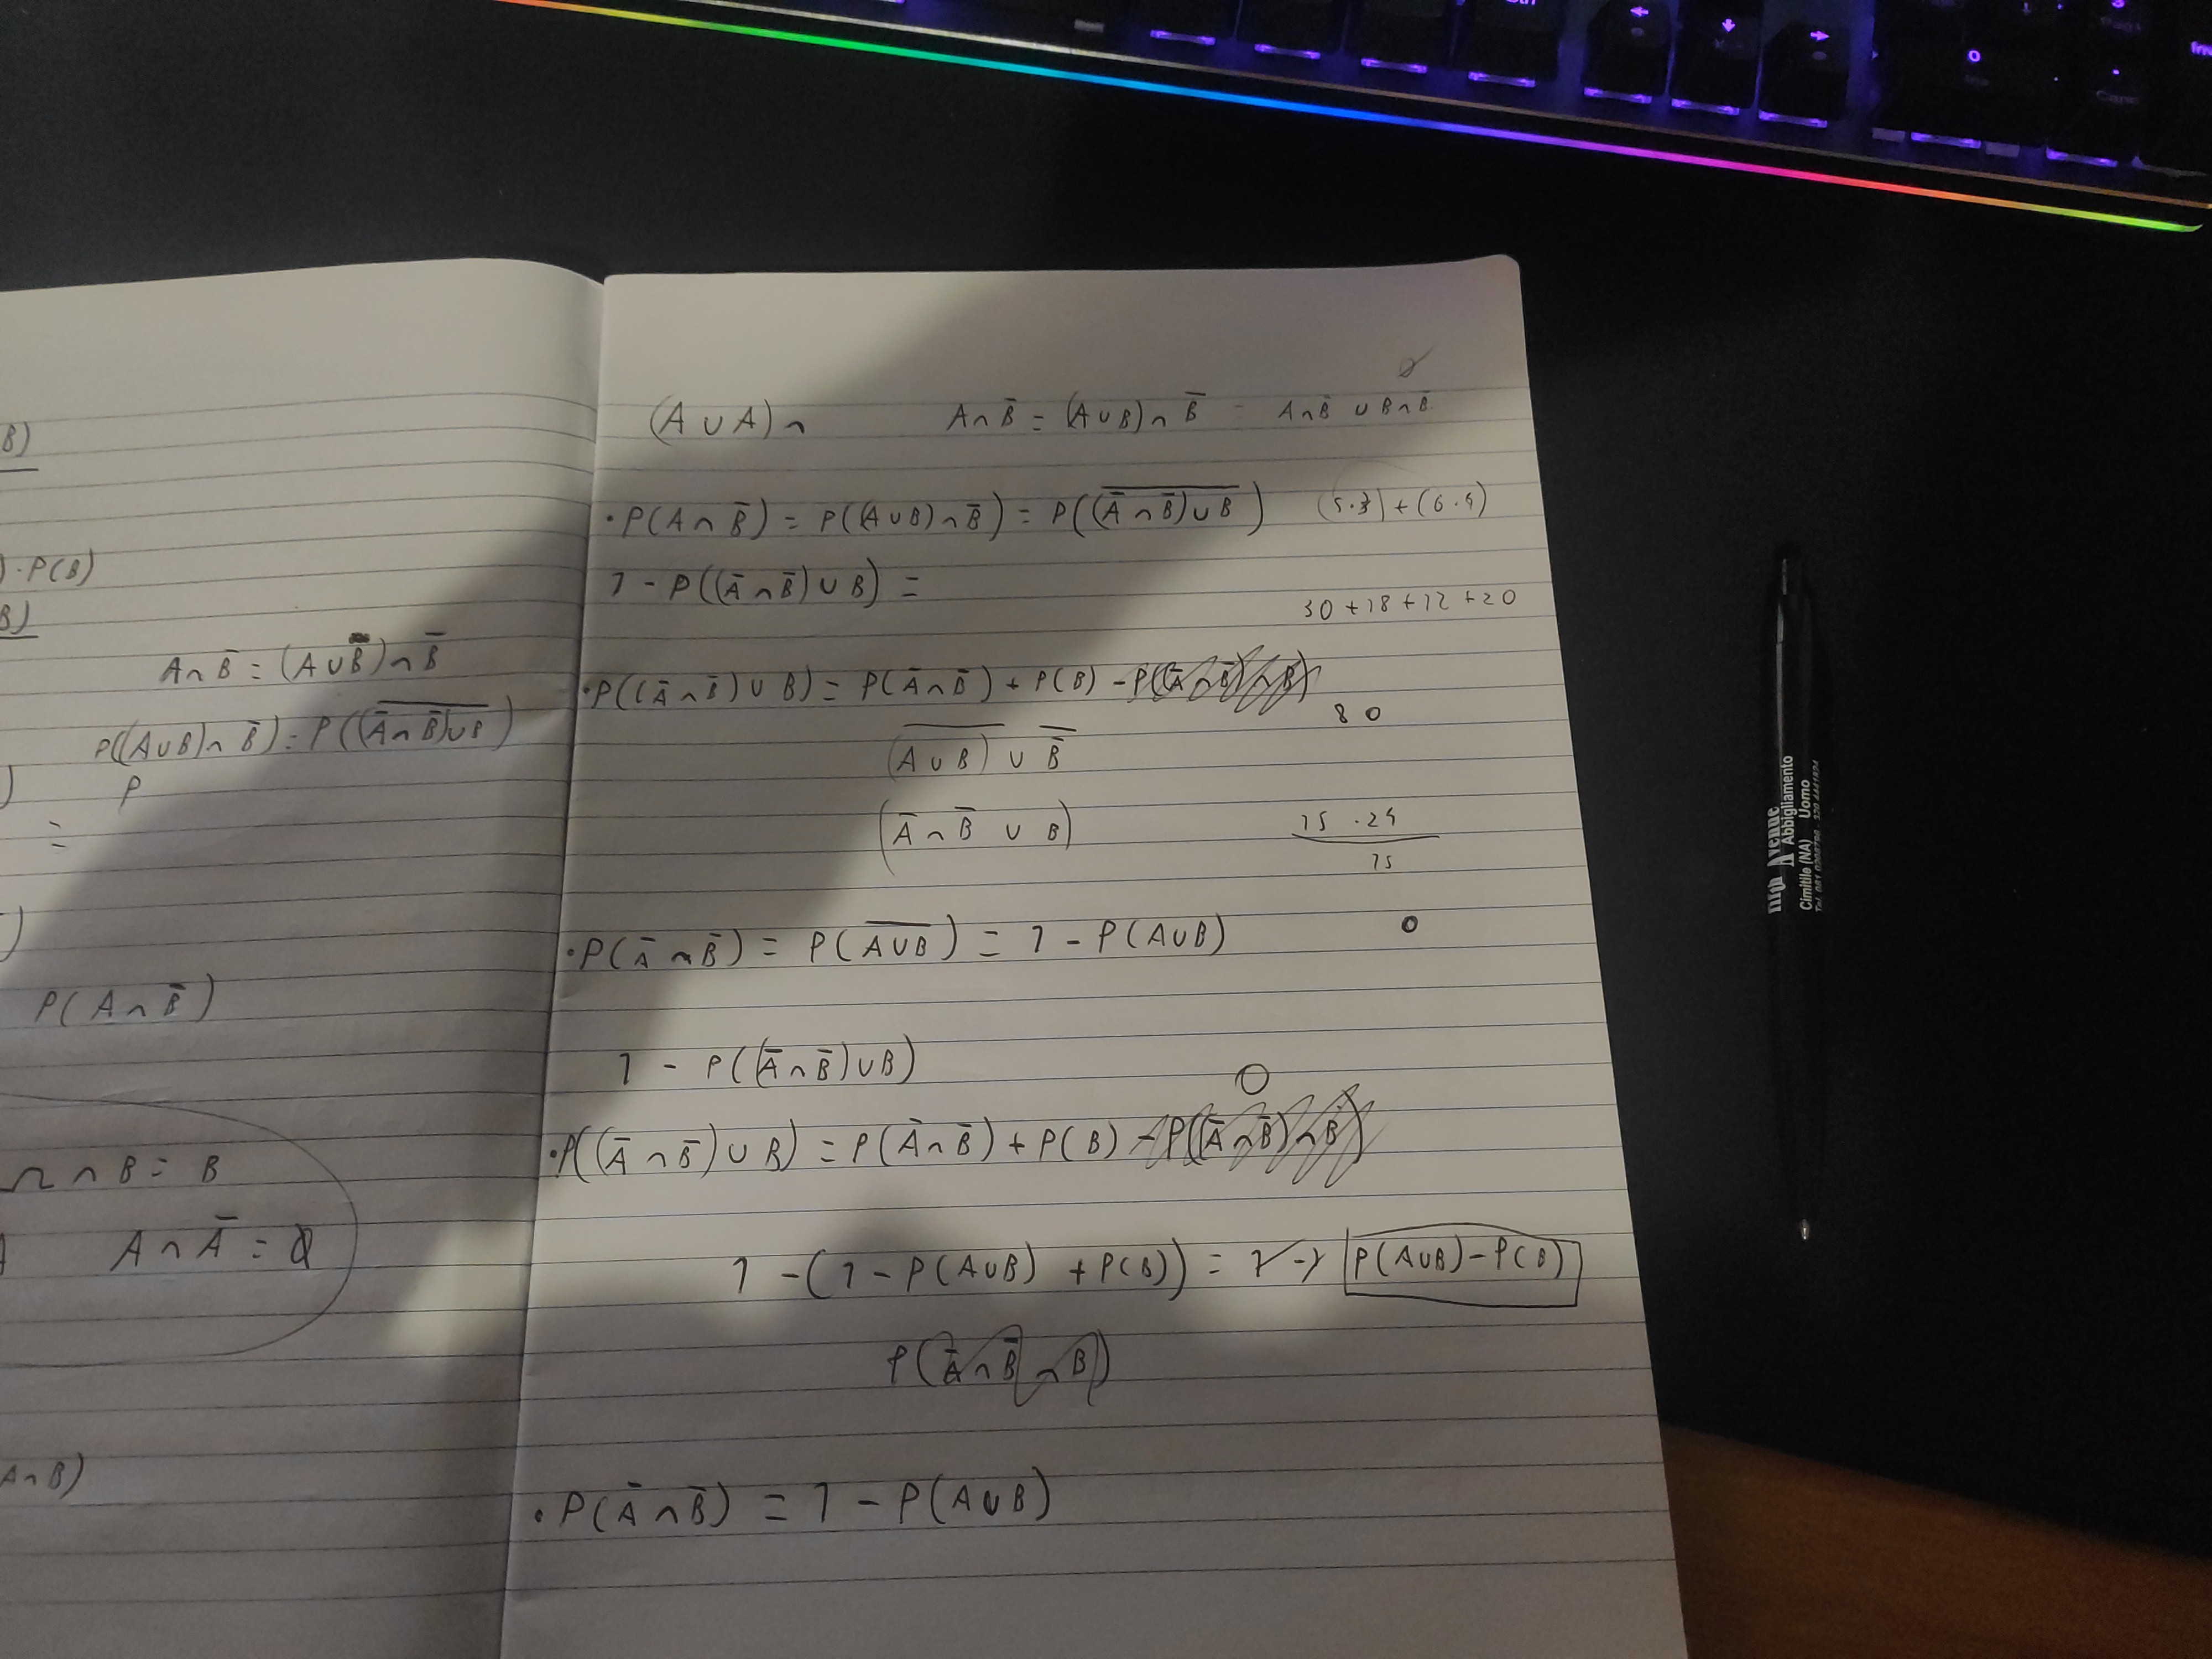 B)
) · P(B)
B)
A∩B̅ = (A∪B)∩B̅
P((A∪B)∩B̅) = P(\overline{(A̅∩B̅)∪B})
)
P
=
)
P(A∩B̅)
Ω∩B = B
A∩A̅ = Ø
A∩B)
(A∪A)∩
A∩B̅ = (A∪B)∩B̅ = A∩B̅ ∪ B∩B̅
Ø
· P(A∩B̅) = P((A∪B)∩B̅) = P(\overline{(A̅∩B̅)∪B})
(5·3)+(6·4)
1 - P((A̅∩B̅)∪B) =
30+18+12+20
· P((A̅∩B̅)∪B) = P(A̅∩B̅) + P(B) - P((A̅∩B̅)∩B)
80
\overline{(A∪B)} ∪ \overline{B̅}
(A̅∩B̅ ∪ B)
15 · 24
15
· P(A̅∩B̅) = P(\overline{A∪B}) = 1 - P(A∪B)
0
1 - P((A̅∩B̅)∪B)
0
· P((A̅∩B̅)∪B) = P(A̅∩B̅) + P(B) - P((A̅∩B̅)∩B)
1 - (1 - P(A∪B) + P(B)) = 1 - 1 P(A∪B) - P(B)
P(A̅∩B̅∩B)
· P(A̅∩B̅) = 1 - P(A∪B)
Abbigliamento
Cimitile (NA) Uomo